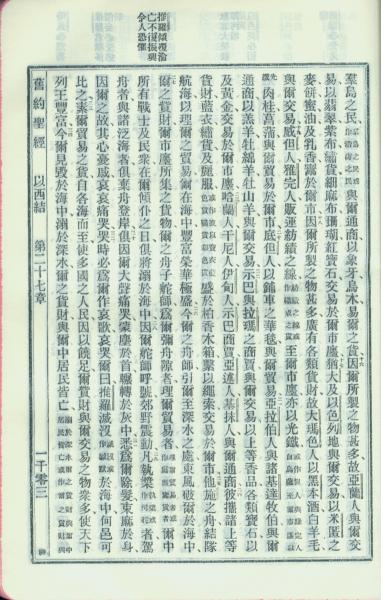 推羅傾覆淪
亡不復振興
令人恐懼
羣島之民羣島之民或作濱海之民與爾通商以象牙烏木易爾之貨因爾所製之物甚多故亞蘭人與爾交
易以翡翠紫布繡貨細麻布珊瑚紅寶石交易於爾市廛猶大及以色列地與爾交易以米匿之
麥餅蜜油及乳香鬻於爾市因爾所製之物甚多廣有各類貨財故大瑪色人以黑本酒白羊毛
與爾交易威但人雅完人販運紡績之線至爾市廛亦以光鐵
肉桂菖蒲與爾貿易於爾市底但人以鋪車之華毯與爾貿易亞拉伯人與諸基達牧伯與爾
通商以羔羊牡綿羊牡山羊與爾交易示巴與拉瑪之商賈與爾交易以上等香品各類寶石以
及黃金交易於爾市廛哈蘭人干尼人伊甸人示巴商賈亞述人基抹人與爾通商彼攜諸上等
貨財藍衣繡貨及麗服盛於柏香木箱縶以繩索交易於爾市他施之舟結隊
航海以理爾之貿易爾在海中豐富榮華極盛今爾之舟師引爾至深水之處東風破爾於海中
爾之貨財爾市廛所集之貨物爾之舟子舵師爲爾彌舟隙者理爾貿易者爾中
所有戰士及民衆在爾傾仆之日俱將溺於海中因爾舵師呼號郊野震動凡執槳者駕
舟者與諸泛海者俱棄舟登岸俱因爾大聲痛哭蒙塵於首輾轉於灰中爲爾除髮束麻於身
因爾之故其心憂戚哀哀痛哭哭時必爲爾作哀歌哀哭爾曰推羅滅沒於海中何邑可
比之素爾貿易之貨自各海而至使多國之人民因以饒足爾貨財與爾交易之物衆多使天下
列王豐富今爾見毀於海中溺於深水爾之貨財與爾中居民皆亡
舊約聖經 以西結 第二十七章 一千零三